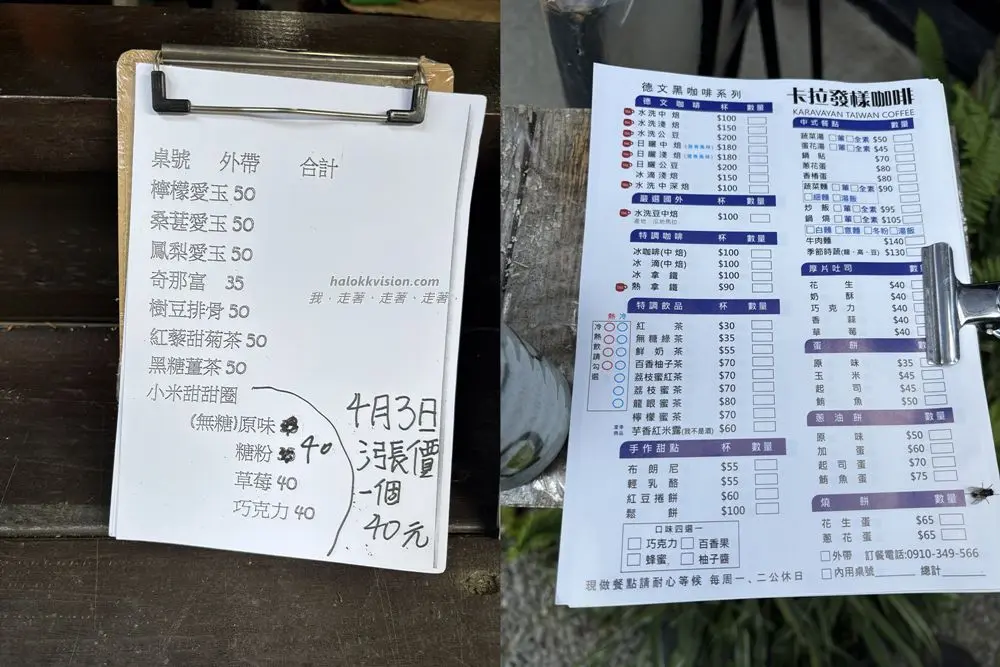 桌號 外帶 合計
檸檬愛玉 50
桑葚愛玉 50
鳳梨愛玉 50
奇那富 35
樹豆排骨 50
紅藜甜菊茶 50
黑糖薑茶 50
小米甜甜圈
(無糖)原味
糖粉 40
草莓 40
巧克力 40
4月3日
漲價
一個
40元
halokkvision.com
我‧走著‧走著、走著‧
德文黑咖啡系列
德文咖啡 杯 數量
水洗中焙 $100
水洗淺焙 $150
水洗公豆 $200
日曬中焙 $180
日曬淺焙 $180
日曬公豆 $200
冰滴淺焙 $150
水洗中深焙 $100
嚴選國外 杯 數量
水洗豆中焙 $100
特調咖啡 杯 數量
冰咖啡(中焙) $100
冰滴(中焙) $100
冰拿鐵 $100
熱拿鐵 $90
特調飲品 杯 數量
熱 冷
冷熱飲請勾選
紅茶 $30
無糖綠茶 $35
鮮奶茶 $55
百香柚子茶 $70
荔枝蜜紅茶 $70
荔枝蜜茶 $70
龍眼蜜茶 $80
檸檬蜜茶 $70
芋香紅米露(我不是酒) $60
手作甜點 杯 數量
布朗尼 $55
輕乳酪 $55
紅豆捲餅 $60
鬆餅 $100
口味四選一
巧克力 百香果
蜂蜜 柚子醬
現做餐點請耐心等候 每周一、二公休日
卡拉發樣咖啡
KARAVAYAN TAIWAN COFFEE
中式餐點 數量
蔬菜湯 葷 全素 $50
蛋花湯 葷 全素 $45
鍋貼 $70
蔥花蛋 $80
香椿蛋 $80
蔬菜麵 葷 全素 $90
細麵 湯飯
炒飯 葷 全素 $95
鍋燒 葷 全素 $105
白麵 意麵 冬粉 湯飯
牛肉麵 $140
季節時蔬(龍、高、豆) $130
厚片吐司 數
花生 $40
奶酥 $40
巧克力 $40
香蒜 $40
草莓 $40
蛋餅
原味 $35
玉米 $45
起司 $45
鮪魚 $50
蔥油餅 數量
原味 $50
加蛋 $60
起司蛋 $70
鮪魚蛋 $75
燒餅 數量
花生蛋 $65
蔥花蛋 $65
外帶 訂餐電話:0910-349-566
內用桌號 總計